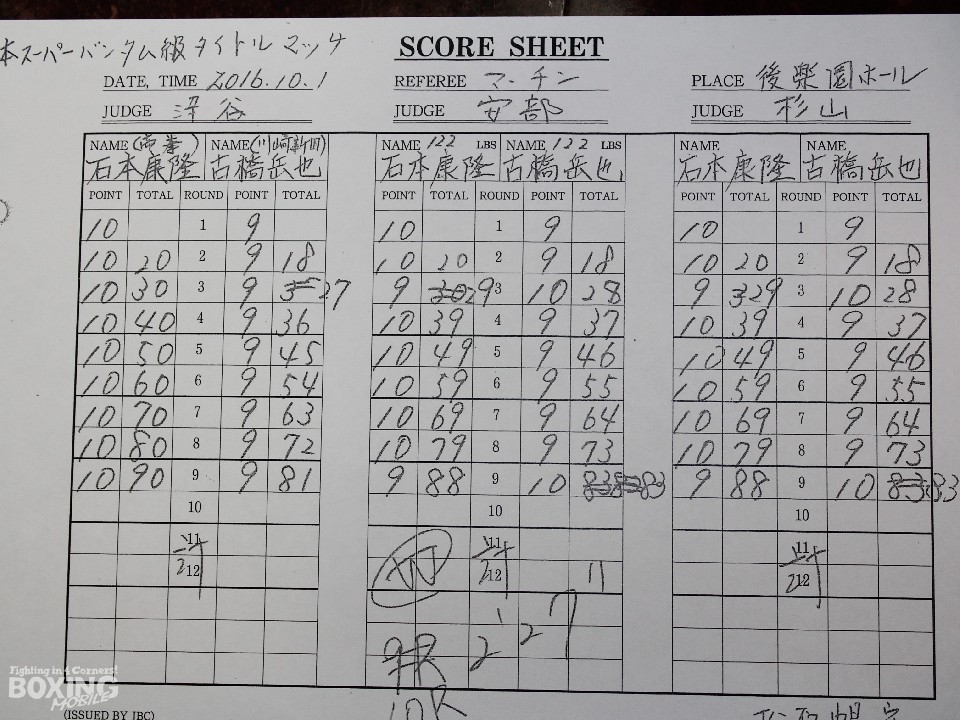 本スーパーバンタム級タイトルマッチ
SCORE SHEET
DATE, TIME 2016.10.1 REFEREE マーチン PLACE 後楽園ホール
JUDGE 深谷 JUDGE 安部 JUDGE 杉山
NAME (帝拳) NAME (川崎新田) NAME 122 LBS NAME 122 LBS NAME NAME
石本康隆 古橋岳也 石本康隆 古橋岳也 石本康隆 古橋岳也
POINT TOTAL ROUND POINT TOTAL POINT TOTAL ROUND POINT TOTAL POINT TOTAL ROUND POINT TOTAL
10 1 9 10 1 9 10 1 9
10 20 2 9 18 10 20 2 9 18 10 20 2 9 18
10 30 3 9 27 9 29 3 10 28 9 329 3 10 28
10 40 4 9 36 10 39 4 9 37 10 39 4 9 37
10 50 5 9 45 10 49 5 9 46 10 49 5 9 46
10 60 6 9 54 10 59 6 9 55 10 59 6 9 55
10 70 7 9 63 10 69 7 9 64 10 69 7 9 64
10 80 8 9 72 10 79 8 9 73 10 79 8 9 73
10 90 9 9 81 9 88 9 10 83 9 88 9 10 83
10 10 10
11 11 11
12 12 11 12
2'27
9R
10R
Fighting in 4 Corners!
BOXING
MOBILE
(ISSUED BY JBC)